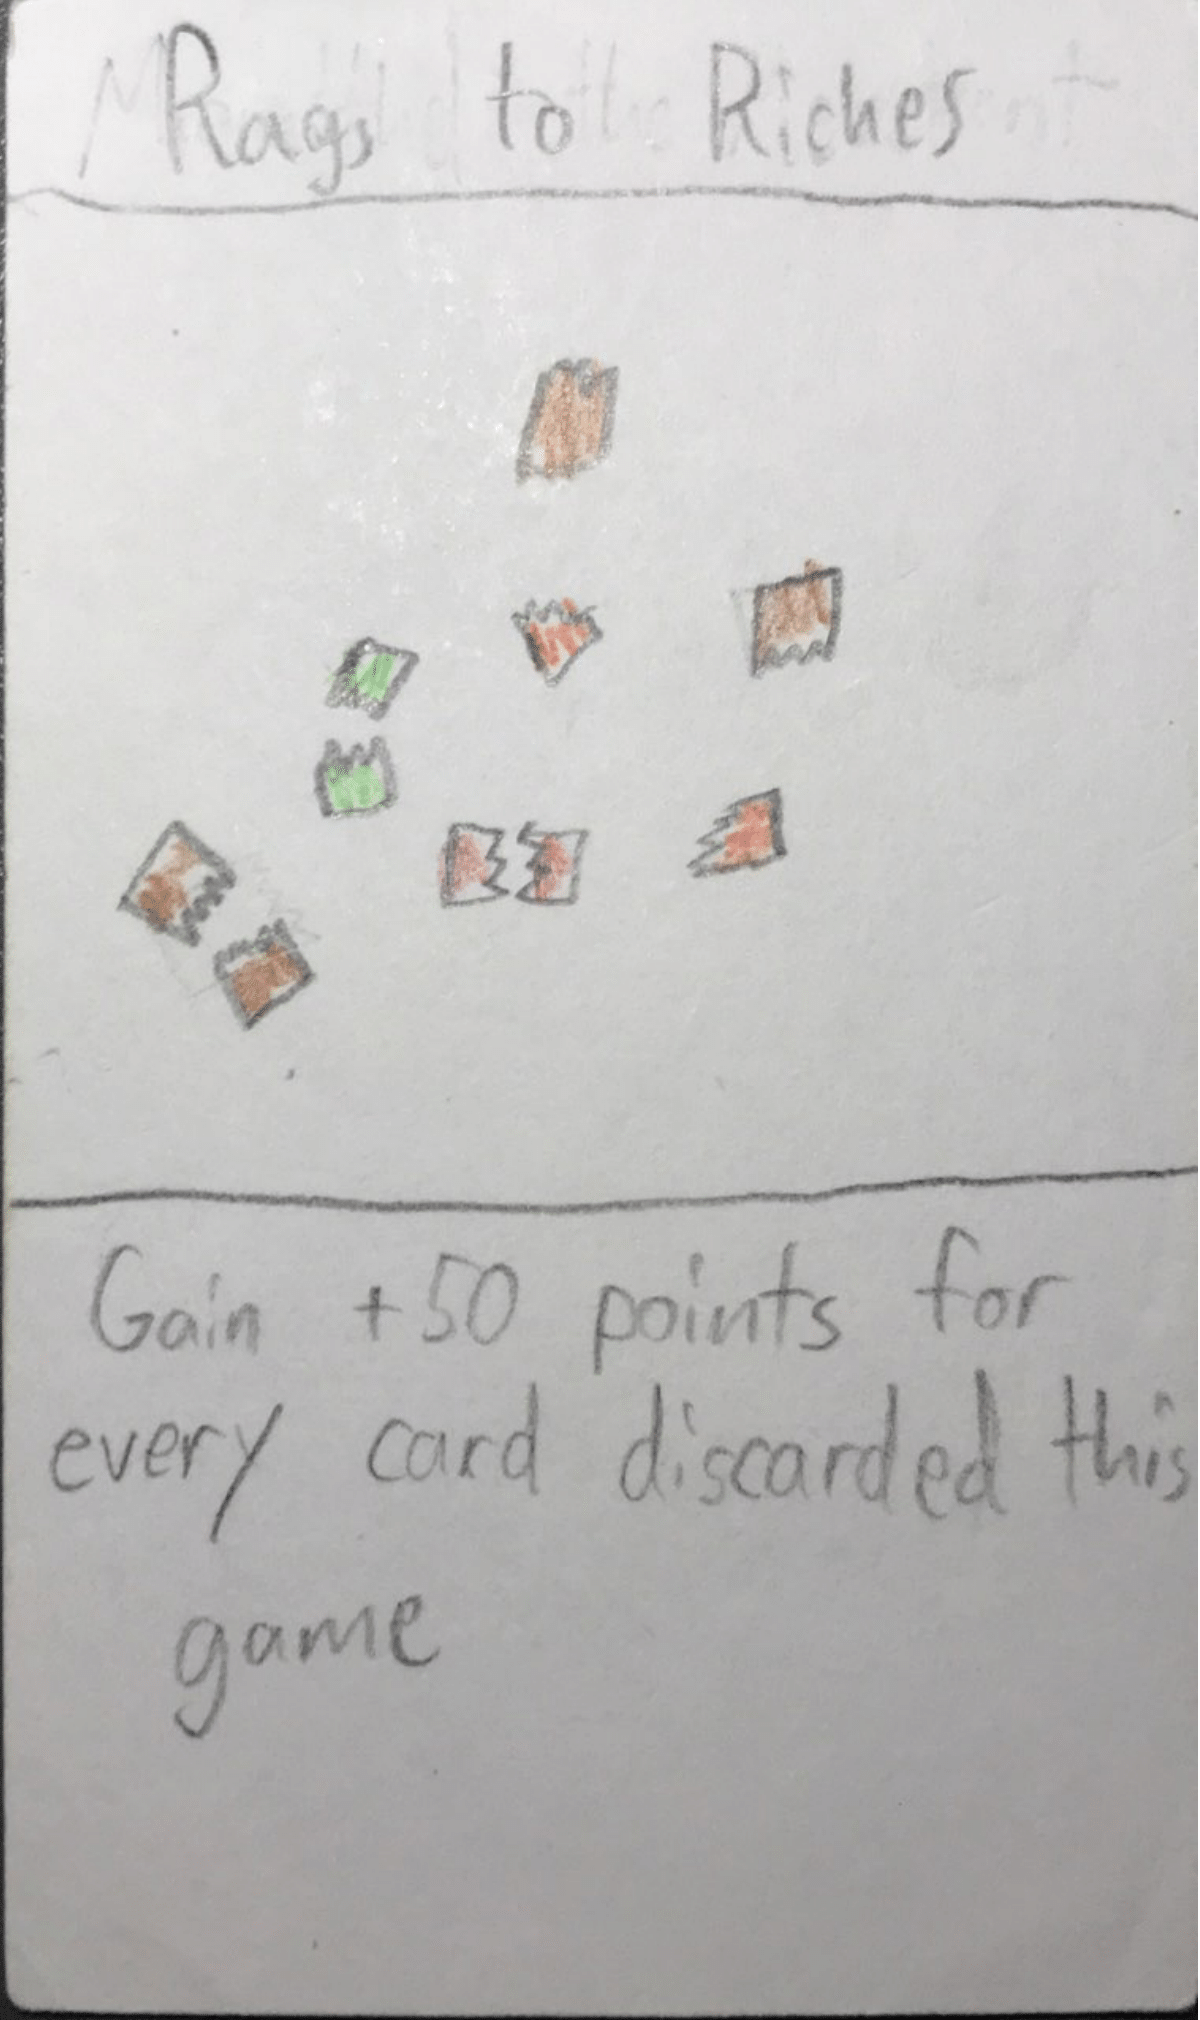 Rags to Riches
Gain +50 points for
every card discarded this
game